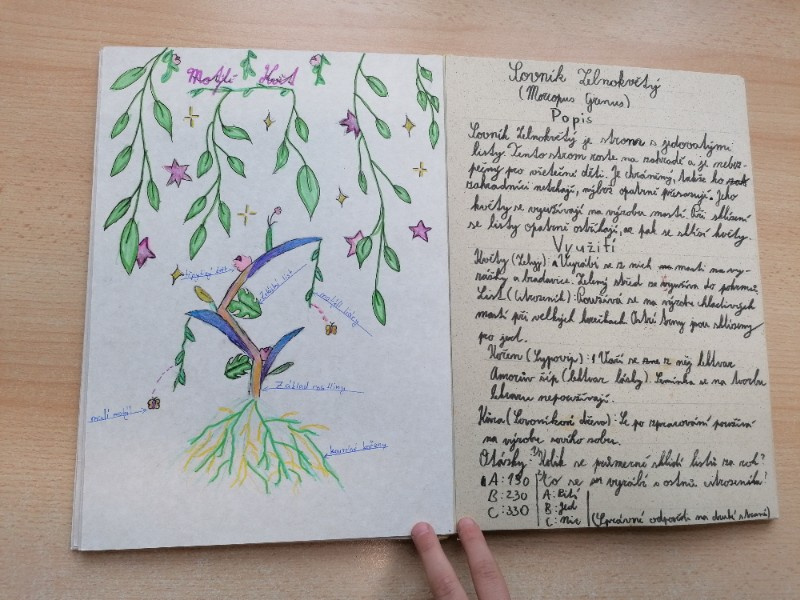 Motýlí Květ
mladý list
motýlí
malí motýl
Základ rostliny
kořeny
Lovník Zelnokvětý
(Morcopus Granus)
Popis
Lovník Zelnokvětý je strom s jedovatými
listy. Tento strom roste na zahradě a je nebez-
pejný pro všetečné děti. Je chráněný, takže ho
zahradníci nesekají, nýbrž opatrně přesazují. Jeho
květy se využívají na výrobu mastí. Při sklízení
se listy opatrně ostříhají, az pak se sklízí květy.
Využití
Květy (Zelyj): Vyrábí se z nich mast na vy-
rážky a bradavice. Zelený střed se využívá do pokrmů.
List (Citrozník): Používá se na výrobu chladivých
mastí při velkých horečkách Ostré trny jsou sklízeny
pro jed.
Kořen (Lypovip): Vaří se z něj lektvar
Amorův šíp (lektvar lásky). Semínka se na tvorbu
lektvaru nepoužívají.
Kůra (Lovoníkové dřevo): Se po zpracování používá
na výrobu nového
Otázky: Kolik se průměrně sklidí listů za rok?
A: 130 Co se vyrábí z ostnů citrozníku?
B: 230 A: Pití
C: 330 B: Jed
C: Nic (Správné odpovědi na druhé straně)